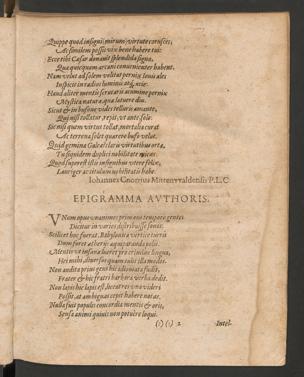 Quippe quod insigni, mirum, virtute corusces,
Ac similem possis vix bene habere tui:
Ecce tibi Cæsar donavit splendida signa,
Quæ quicquam arcani convenienter habent.
Nam velut ad solem volitat pernix Iovis ales
Inspicit in radios luminis atq; acie:
Haud aliter mentis scrutaris acumine pernix
Mystica natura, qua latuere diu.
Sicut & in bufone vides telluris amante,
Qui nisi tollatur repit, ut ante solo:
Sic nisi quem virtus tollat, mortalia curat
Ac terrena solet quærere bufo velut.
Quid gemina Galea? claris virtutibus orta,
Tu siquidem duplici nobilitate micas:
Quod superest istis insignibus utere felix,
Lauriger ac titulum nobilitatis habe.
Iohannes Gnorrius Mittenvvaldensis P. L. C
EPIGRAMMA AVTHORIS.
VNam opus unanimes primævo tempore gentes
Dicitur in varios distribuisse sonos.
Scilicet hoc fuerat, Babylonica vertice turris
Dum foret ætherijs æquiparanda polis.
Mentis ut insana lueret pro crimine lingua,
Hei mihi, diversos quàm tulit illa modos.
Non audita prius gens hic idiomata fudit,
Frater & hic fratri barbara verba dedit.
Non lapis hic lapis est, locutrei una videri
Possit, at ambiguas cepit habere notas.
Nulla fuit populis concordia mentis & oris,
Sensa animi quivis non potuere loqui.
(:) (:) 2 Intel-